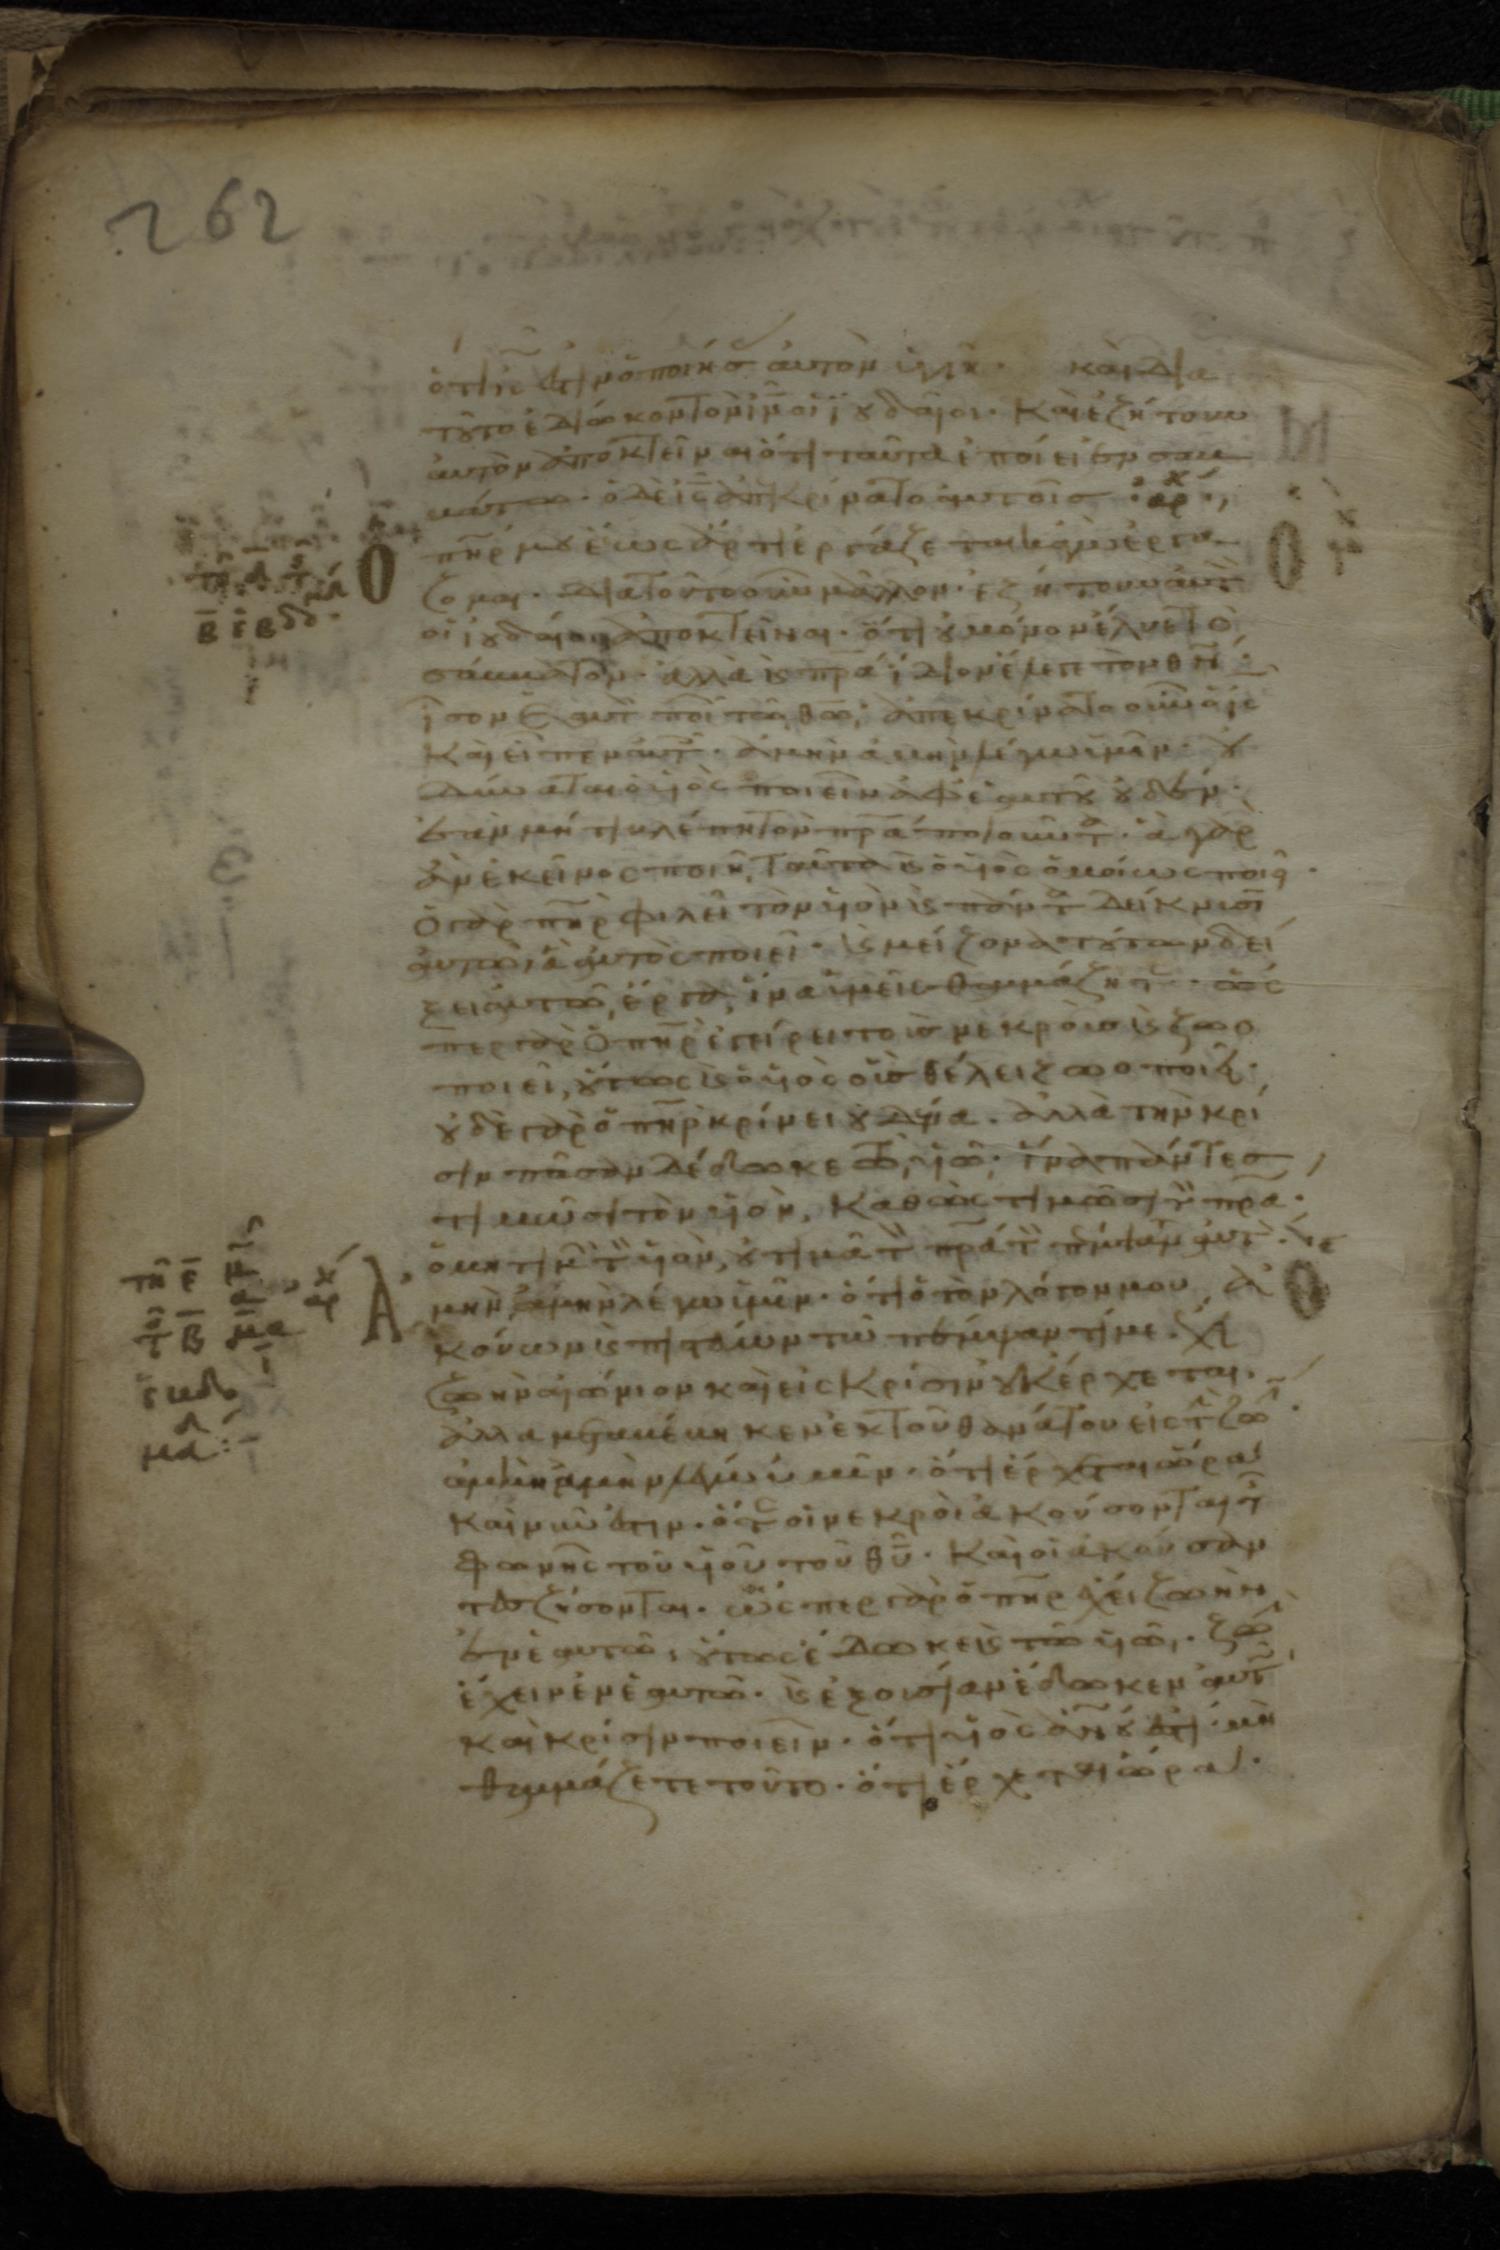 262
ὅτι ις ἐστὶν ὁ ποιήσ αὐτὸν ὑγιῆ· καὶ δια
τοῦτο ἐδίωκον τὸν ιν οἱ ἰουδαῖοι· καὶ ἐζήτουν
αὐτὸν ἀποκτεῖναι ὅτι ταῦτα ἐποίει ἐν σαβ
βάτω· ὁ δὲ ις ἀπεκρίνατο αὐτοῖσ· αρχ
πηρ μου ἕως ἄρτι ἐργάζεται κἀγὼ ἐργα
ζομαι· διατοῦτο οὖν μᾶλλον ἐζήτουν αὐτὸ
οἱ ἰουδαῖοι ἀποκτεῖναι· ὅτι οὐ μόνον ἔλυε τὸ
σάββατον· ἀλλὰ καὶ πρα ἴδιον ἔλεγε τὸν θν·
ἴσον ἑαυτὸν ποιῶν τῶ θω· ἀπεκρίνατο οὖν ὁ ις
καὶ εἶπεν αὐτοῖς· ἀμὴν ἀμὴν λέγω ὑμῖν· οὐ
δύναται ὁ υἱὸς ποιεῖν ἀφ ἑαυτοῦ οὐδέν·
ἐὰν μή τι βλέπη τὸν πρα ποιοῦντα· ἃ γὰρ
ἂν ἐκεῖνος ποιῆ, ταῦτα καὶ ὁ υἱὸς ὁμοίως ποιεῖ·
Ὁ γὰρ πηρ φιλεῖ τὸν υἱὸν καὶ πάντα δείκνυσι
αὐτῶ ἃ αὐτὸς ποιεῖ· καὶ μείζονα τούτων δεί
ξει αὐτῶ ἔργα, ἵνα ὑμεῖς θαυμάζητε· ὥσ
περ γὰρ ὁ πηρ ἐγείρει τοὺσ νεκροὺσ καὶ ζωο
ποιεῖ, οὕτως καὶ ὁ υἱὸς οὓσ θέλει ζωοποιεῖ·
οὐδὲ γὰρ ὁ πηρ κρίνει οὐδένα· ἀλλὰ τὴν κρί
σιν πᾶσαν δέδωκε τῶ υἱῶ· ἵνα πάντεσ
τιμῶσι τὸν υἱὸν, καθὼς τιμῶσι τὸν πρα·
ὁ μὴ τιμῶν τὸν υἱὸν, οὐ τιμᾶ τὸν πρα τὸν πέμψαντα αὐτὸν·
Ἀμὴν ἀμὴν λέγω ὑμῖν· ὅτι ὁ τὸν λόγον μου ἀ
κούων καὶ πιστεύων τῶ πέμψαντί με· ἔχει
ζωὴν αἰώνιον καὶ εἰς κρίσιν οὐκ ἔρχεται·
ἀλλα μεταβέβηκεν ἐκ τοῦ θανάτου εἰς τὴν ζωὴν·
ἀμὴν ἀμὴν λέγω ὑμῖν· ὅτι ἔρχεται ὥρα
καὶ νῦν ἐστιν· ὅτε οἱ νεκροὶ ἀκούσονται τῆς
φωνῆς τοῦ υἱοῦ τοῦ θυ· καὶ οἱ ἀκούσαν
τες ζήσονται· ὥσπερ γὰρ ὁ πηρ ἔχει ζωὴν
ἐν ἑαυτῶ, οὕτως ἔδωκε καὶ τῶ υἱῶ· ζωὴν
ἔχειν ἐν ἑαυτῶ· καὶ ἐξουσίαν ἔδωκεν αὐτῶ
καὶ κρίσιν ποιεῖν· ὅτι υἱὸς ανου ἐστί· μὴ
θαυμάζετε τοῦτο· ὅτι ἔρχεται ὥρα·